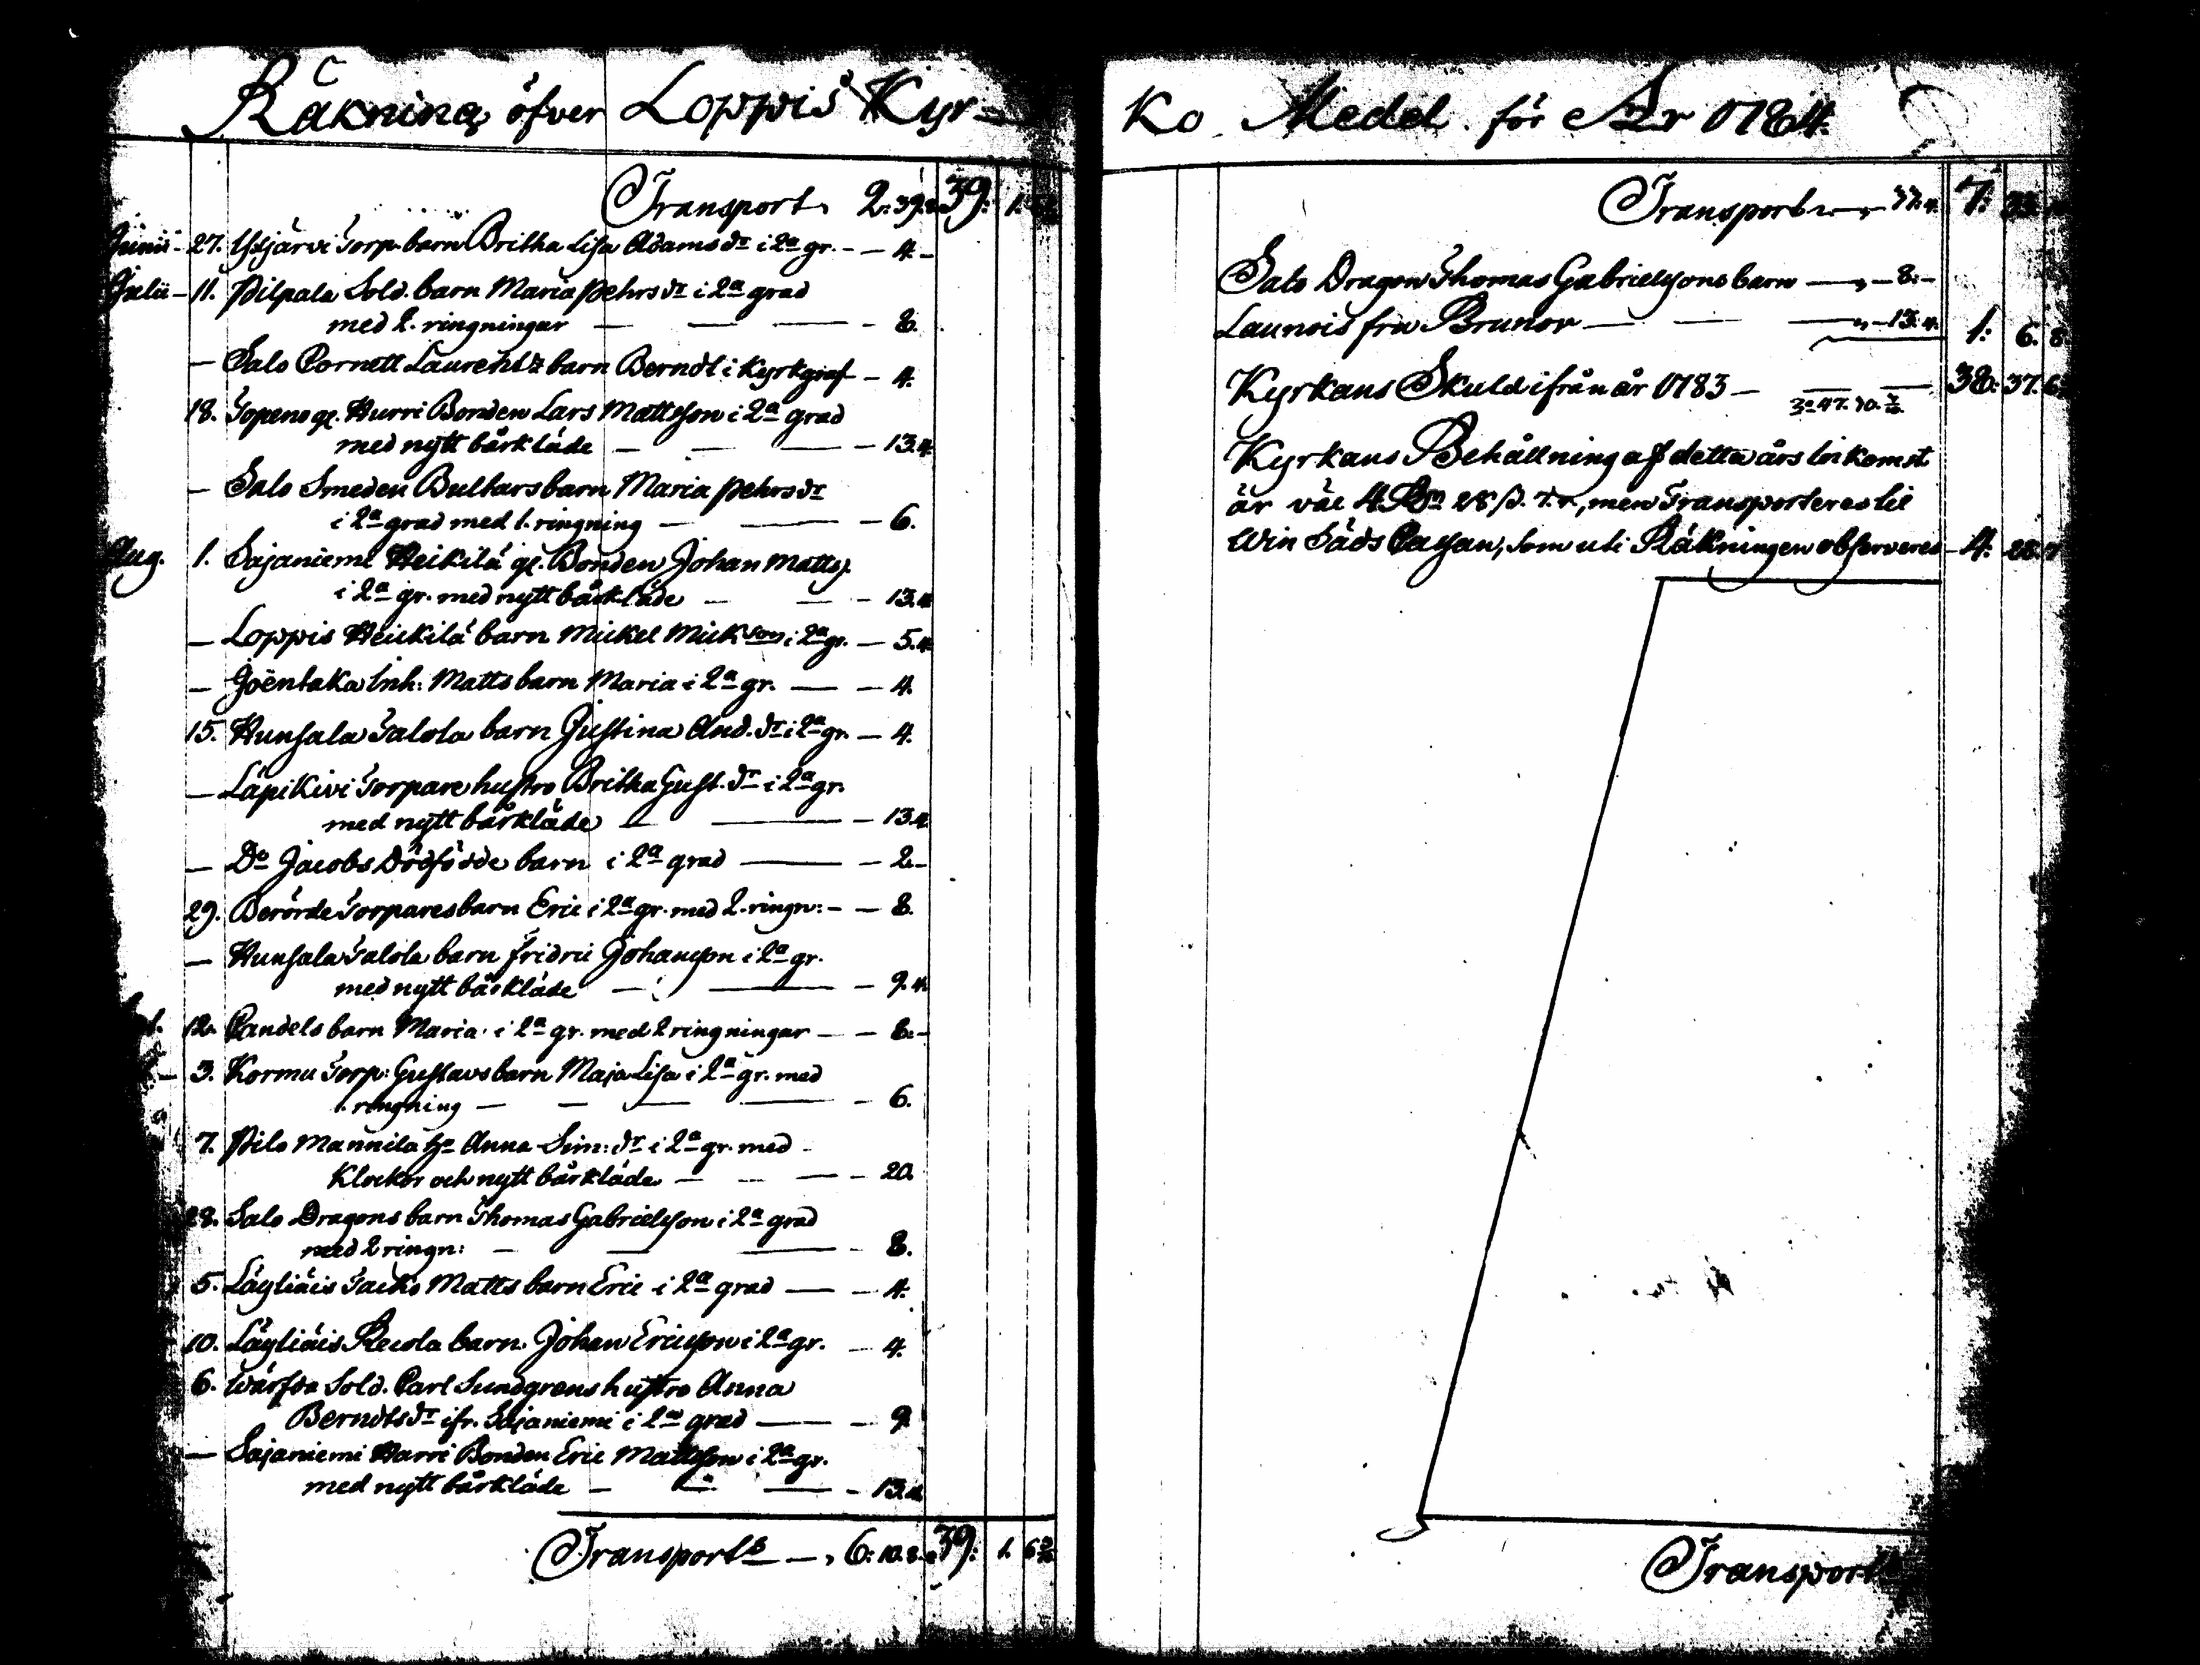 Räkning öfver Loppis Kyr=
Transport 2: 39. 39: 1.
Junii - 27. Ystjärvi Torp. barn Britha Lisa Adams dr i 2a gr. - - 4 -
Julii - 11. Pilpala Sold. barn Maria Pehrs dr i 2a grad
med 2. ringningar - 8.
— Salo Cornett Laurentz barn Berndt i Kyrkgraf - 4.
18. Topeno gl. Hurri Bonden Lars Mattsson i 2a grad
med nytt bårkläde - 13.4
— Salo Smeden Bultars barn Maria Pehrs dr
i 2a grad med 1. ringning - 6.
Aug. 1. Sajaniemi Heikilä gl. Bonden Johan Matts.
i 2a gr. med nytt bårkläde - 13.4
— Loppis Heickilä barn Mickel Mickson i 2a gr. - 5.4
— Joëntaka Inh: Matts barn Maria i 2a gr. - 4.
15. Hunsala Talola barn Justina And. dr i 2a gr. - 4.
— Läpikivi Torpare hustro Britha Gust. dr i 2a gr.
med nytt bårkläde - 13.4
— Do Jacobs Dödfödde barn i 2a grad - 2 -
29. Berörde Torpares barn Eric i 2a gr. med 2. ringn: - - 8.
— Hunsala Talola barn Fridric Johansson i 2a gr.
med nytt bårkläde - 9.4.
12. Candels barn Maria i 2a gr. med 2 ringningar - - 8: -
3. Kormu Torp: Gustavs barn Maja Lisa i 2a gr. med
1. ringning - 6.
7. Pilo Mannila ho Anna Sim: dr i 2a gr. med
Klockor och nytt bårkläde - 20.
28. Salo Dragons barn Thomas Gabrielsson i 2a grad
med 2 ringn: - 8.
5. Läyliäis Matts barn Eric i 2a grad - 4.
10. Läyliäis barn Johan Ericsson i 2a gr. - 4.
6. Wärfda Sold. Carl Sundgrens hustro Anna
Berndts dr ifr. Sajaniemi i 2a grad - 9.
— Sajaniemi Harri Bonden Eric Mattsson i 2a gr.
med nytt bårkläde - 13.4
Transport - , 6: 10. 8. 39: 1. 6
ko Medel för År 1784.
Transport 7:
Salo Dragon Thomas Gabrielssons barn - 8: -
Launois fru Brunov - 13.4. 1: 6. 8
Kyrkans Skuld ifrån år 1783 - 38: 37. 6
Kyrkans Behållning af detta års Inkomst
är väl 4 28 ß. 7. r., men Transporteres til
Win Säds Cassan, som uti Räkningen observeres - 4: 28. 7
Transport